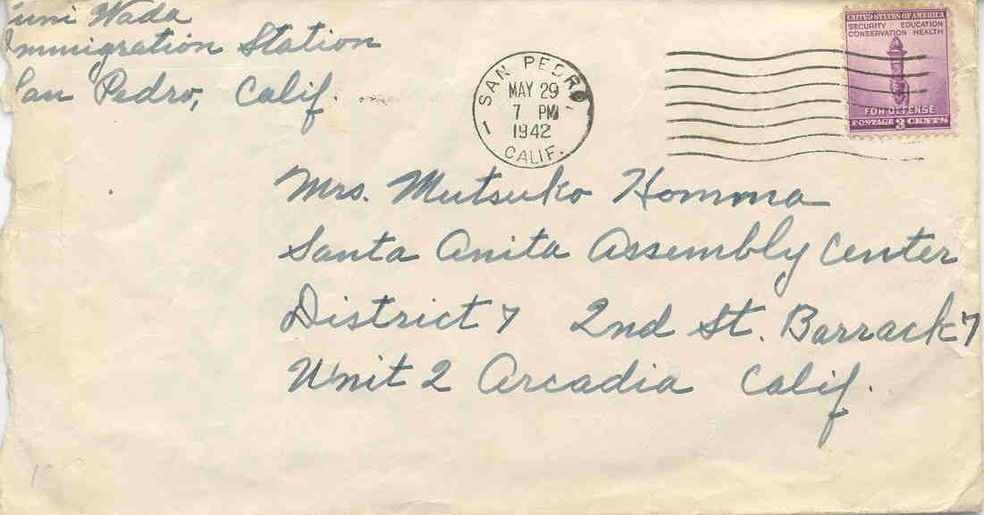 Wada
Immigration Station
San Pedro, Calif.
SAN PEDRO,
MAY 29
7 PM
1942
CALIF.
1
UNITED STATES OF AMERICA
SECURITY EDUCATION
CONSERVATION HEALTH
FOR DEFENSE
POSTAGE 3 CENTS
Mrs. Mutsuko Homma
Santa Anita Assembly Center
District 7 2nd St. Barrack 7
Unit 2 Arcadia Calif.